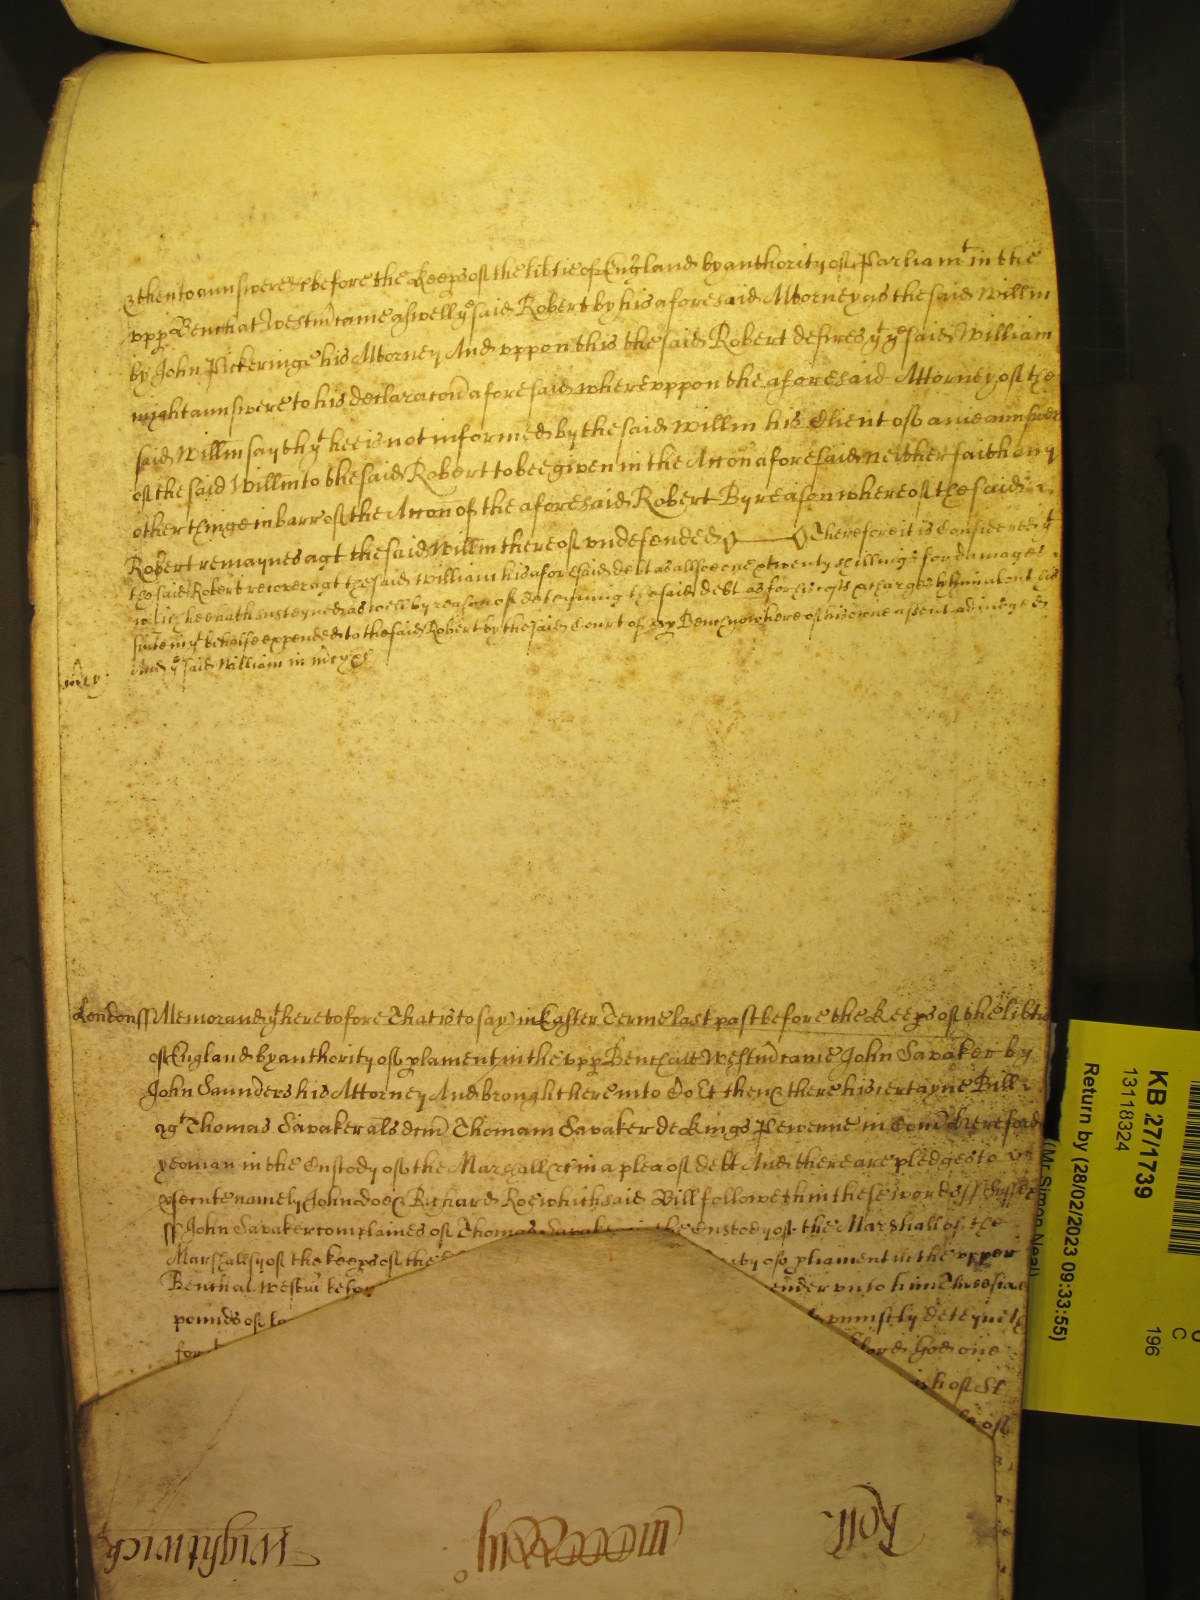 & then to aunswere &c before the Keeps of the libtie of England by authority of Parliamt in the
vpp Bench at Westm came aswell ye said Robert by his aforesaid Attorney as the said Willm
by John Pickeringe his Attorney And vppon this the said Robert desires yt ye said William
might aunswere to his declaracon aforesaid wherevppon the aforesaid Attorney of the
said Willm sayth yt hee is not informed by the said Willm his Client of ame aunswer
of the said Willm to the said Robert to bee given in the Accon aforesaid neither saith any
other thinge in barr of the Accon of the aforesaid Robert By reason whereof the said
Robert remaynes agt the said Willm thereof vndefended Therefore it is Considered yt
the said Robert recover agt the said William his aforesaid debt as allsoe one & twenty shillings for damages
which hee hath susteyned as well by reason of deteyning the said debt as for his costs & charges by him about his
suite in yt behalfe expended to the said Robert by the said Court of vpp Bench now here of his owne assent adiudged
And ye said William in mcy &c
mcy
London ss Memorand yt heretofore That is to say in Easter Terme last past before the Keeps of the libtie
of England by authority of pliament in the vpp Bench att Westm came John Savaker by
John Saunders his Attorney And brought here into Court then & there his certayne Bill
agt Thomas Savaker als dcm Thomam Savaker de Kings Pewenne in Com Hereford
yeoman in the Custody of the Marshall &c in a plea of debt And there are pledges to
psecute namely John doe & Richard Roe which said Bill followeth in these words ss
ss John Savaker complaines of Thomas Savaker the Custody of the Marshall of the
Marshallsy of the keeps of the ty of pliament in the vpper
Bench at Westm before ender vnto him Threesiore
pounds of la punistly deteyneth
for Lord God one
sh of St
Roll
Wightwick
KB 27/1739
13118324
Return by (28/02/2023 09:33:55)
(Mr Simon Neal)
196
C